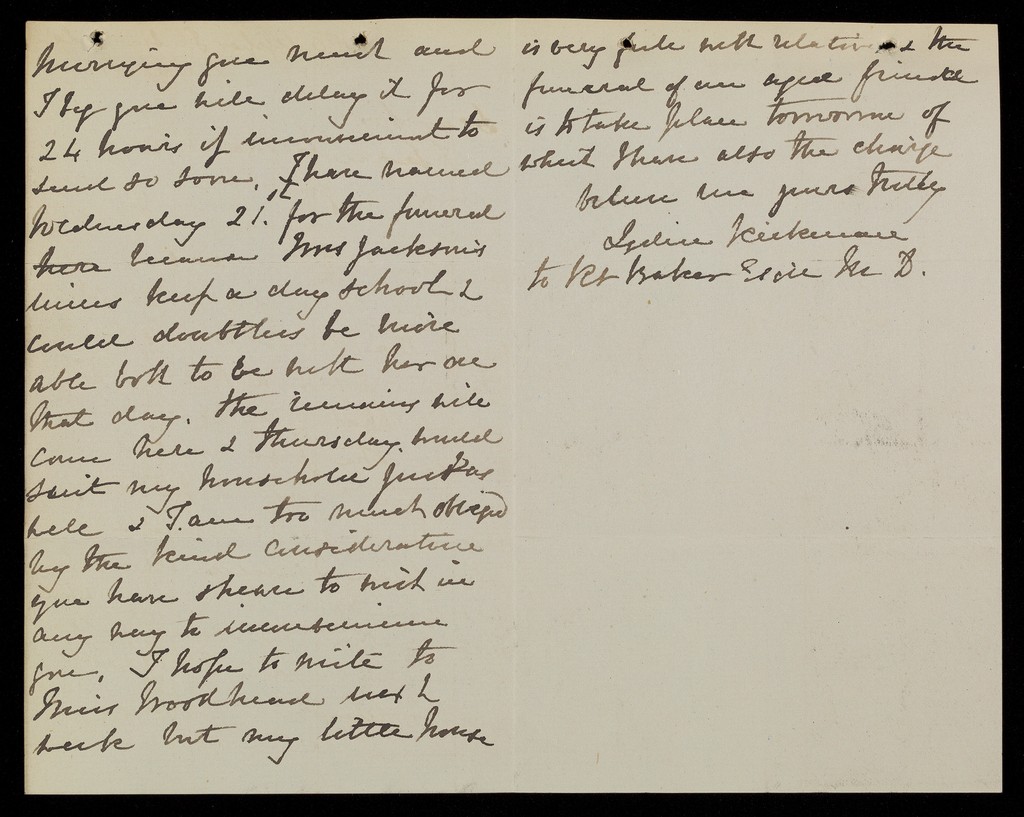 hurrying you much and
I beg you will delay it for
24 hours if inconvenient to
send so soon. I have named
Wednesday 21. for the funeral
here because Mrs Jackson's
nieces keep a day school &
could doubtless be more
able both to be with her on
that day. The remains will
come here & Thursday would
suit my household just as
well & I am too much obliged
by the kind consideration
you have shewn to wish in
any way to inconvenience
you, I hope to write to
Miss Woodhead next
week but my little house
is very full with relatives & the
funeral of an aged friend
is to take place tomorrow of
which I have also the charge
believe me yours truly
Lydia Kirkman
to Rt Baker Esqre M D.